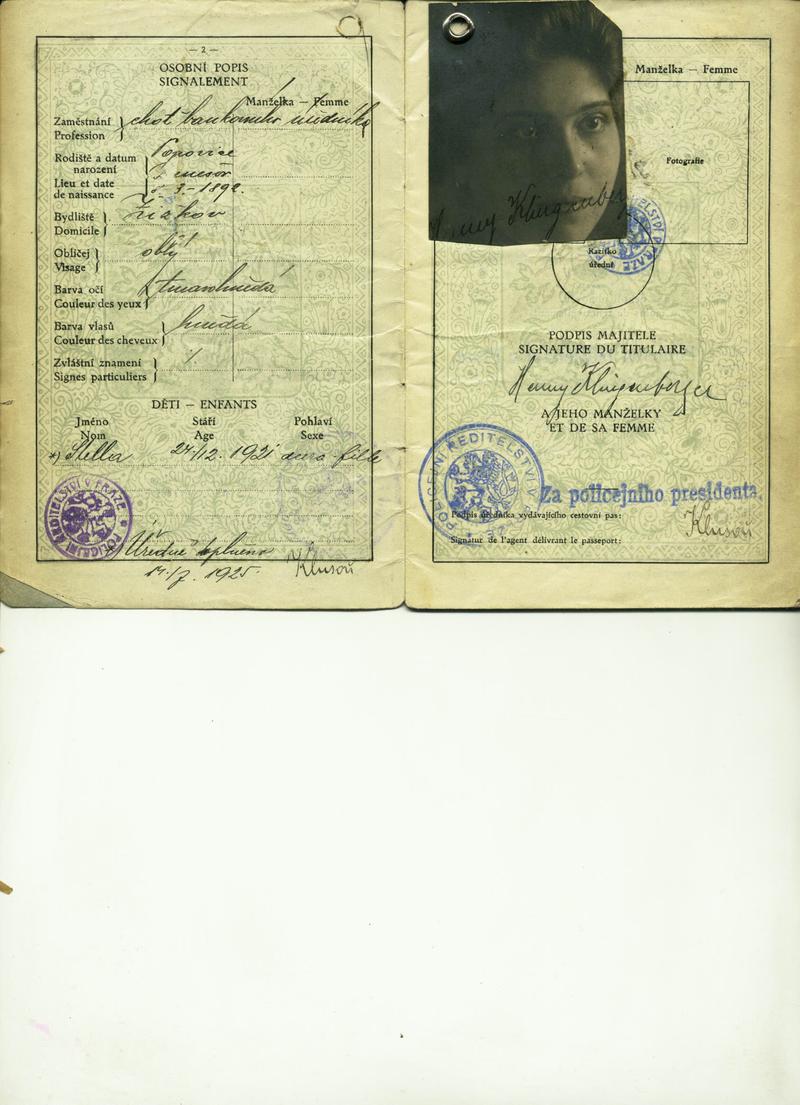 — 2 —
OSOBNÍ POPIS
SIGNALEMENT
Manželka — Femme
Zaměstnání
Profession
choť bankovního úředníka
Rodiště a datum
narození
Lieu et date
de naissance
Popovice
3 - 1892.
Bydliště
Domicile
Žižkov
Obličej
Visage
oblý
Barva očí
Couleur des yeux
tmavohnědá
Barva vlasů
Couleur des cheveux
hnědá
Zvláštní znamení
Signes particuliers
DĚTI — ENFANTS
Jméno Stáří Pohlaví
Nom Age Sexe
*) Stella 24/12. 1921 dcera fille
POLICEJNÍ ŘEDITELSTVÍ V PRAZE
Úředně doplněno
14./7. 1925. Klusoň
Manželka — Femme
Fotografie
Henny Klingenberger
Razítko
úřední
PODPIS MAJITELE
SIGNATURE DU TITULAIRE
Henny Klingenberger
A JEHO MANŽELKY
ET DE SA FEMME
POLICEJNÍ ŘEDITELSTVÍ V
Za policejního presidenta
Podpis úředníka vydávajícího cestovní pas:
Klusoň
Signatur de l'agent délivrant le passeport: